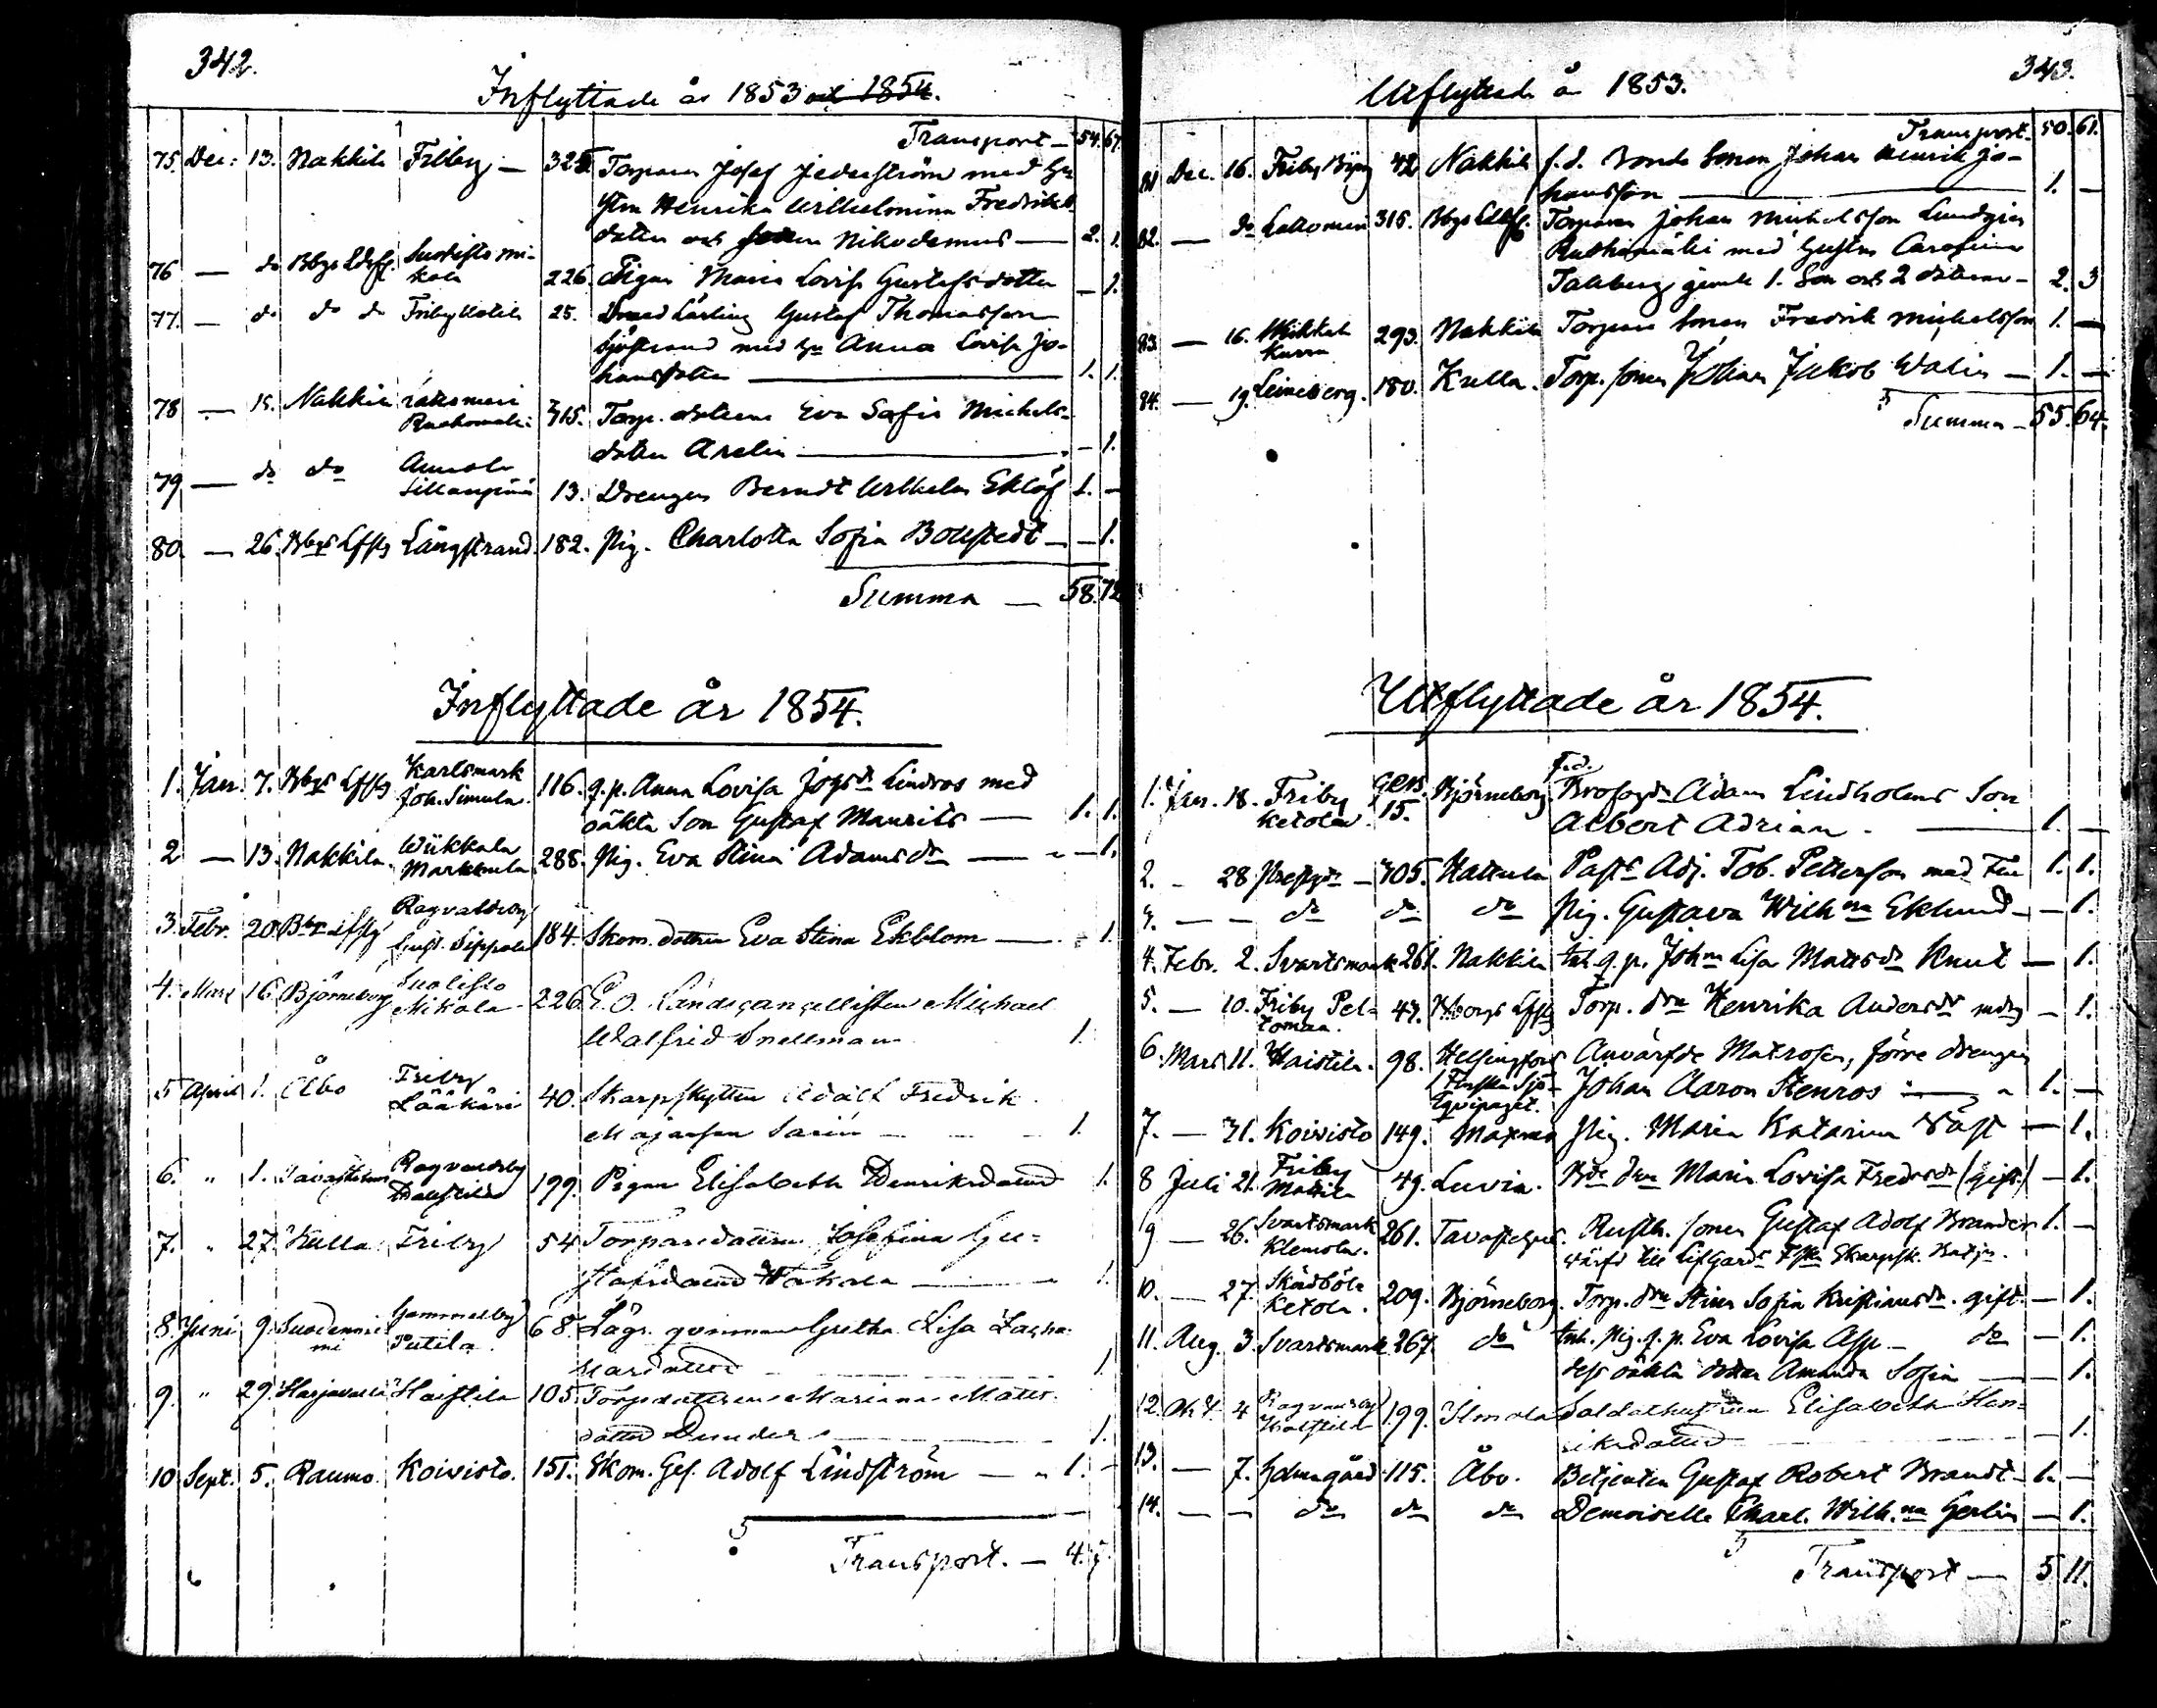 342.
Inflyttade år 1853 och 1854.
Transport — 54. 67.
75. Dec: 13. Nakkila Friby — 325 Torparen Josef Jederström med hu-
stru Henrika Wilhelmina Fredriks
dotter och sonen Nikodemus — 2. 1.
76 — do Bbgs Ldsfg. Suolisto Mi-
kola 226. Pigan Maria Lovisa Gustafsdotter — 1.
77. — do do do Friby 25. Lärling Gustaf Thomasson
Sjöstrand med hu Anna Lovisa Jo-
hansdotter — 1. 1.
78 — 15. Nakkila Lattomeri
Ruohomäki 315. Torp. dottren Eva Sofia Michels-
dotter Arelin — 1.
79 — do do Annola
Sillanpää 13. Drengen Berndt Wilhelm Eklöf 1. —
80. — 26. Bbgs Lffg Långstrand. 182. Pig. Charlotta Sofia Bollstedt — — 1.
Summa — 58. 72
Inflyttade år 1854.
1. Jan. 7. Bbgs Lffg Karlsmark
Joh. Simula. 116. q.p. Anna Lovisa Jogsdr Lindros med
oäkta Son Gustaf Maurits — 1. 1.
2 — 13. Nakkila Wiikkala
Markkula 288. Pig. Eva Stina Adamsdr — — 1.
3. Febr. 20. Bbgs Lffg Ragvaldsby
Sippola 184. Skom. dottren Eva Stina Ekblom — 1.
4. Mars 16. Björneborg Suolisto
Mikola 226. E.O. Landscancellisten Michael
Walfrid Snellman 1.
5 April 1. Åbo Friby
Lääkäri 40. Skarpskytten Adolf Fredrik
Sarin — 1.
6. " 1. Tavastehus Ragvaldsby
199. Pigan Elisabeth Henriksdotter 1.
7. " 27. Kulla Friby 54 Torparedottren Josefina Gu-
stafsdotter — 1.
8. Juni 9. Suodennie-
mi Gammelby
Putila. 68. Lägs. qvinnan Gretha Lisa Zacha-
riasdotter 1.
9. " 29. Harjavalta Haistila 105. Torpdottren Mariana Matts-
dotter — 1.
10 Sept. 5. Raumo. Koivisto. 151. Skom. Ges. Adolf Lindström — 1. —
Transport. — 4. 7.
343.
Utflyttade år 1853.
Transport. 50. 61.
81 Dec. 16. Friby 42 Nakkila f.d. Bonde Sonen Johan Henrik Jo-
hansson — 1. —
82. — do Lattomeri 315. Bbgs Ldsfg. Torparen Johan Michelsson Lundgren
Ruohomäki med hustru Carolina
Tallberg jemte 1. Son och 2 döttrar — 2. 3
83. — 16. Wiikkala
Kurra 293. Nakkila Torpare Sonen Fredrik Michelsson 1. —
84. — 19. Leineberg. 180. Kulla. Torp. sonen Johan Jakob Walin — 1. —
Summa — 55. 64.
Utflyttade år 1854.
1. Jan. 18. Friby
Ketola 15. Björneborg F.d.
Brofogden Adam Lindholms Son
Albert Adrian. — 1. —
2. — 28 Prestgn — 305. Hattula Past. Adj. Tob. Petterson med Fru 1. 1.
3. — — do do do Pig. Gustava Wilhna Eklund — — 1.
4. Febr. 2. Svartsmark 261. Nakkila Inh. q.p. Johna Lisa Mattsdr Knut — 1.
5. — 10. Friby Pel-
tomaa. 47. Bborgs Lffg Torp. drn Henrika Andersdr — 1.
6. Mars 11. Haistila. 98. Helsingfors
Finska Sjö-
Eqvipaget. Anvärfde Matrosen, förre drengen
Johan Aaron Stenros — 1. —
7. — 31. Koivisto 149. Maxmo Pig. Maria Katarina Wäst — 1.
8 Juli 21. Friby
Mattila 49. Luvia. Bde drn Maria Lovisa Fredrsdr (gift) — 1.
9 — 26. Svartsmark
Klemola. 261. Tavastehus. Rusth. sonen Gustaf Adolf Brander 1. —
värfd till Lifgards Fska Skarpsk. Batjn.
10. — 27. Skådböle
Ketola. 209. Björneborg. Torp. drn Stina Sofia Kristiansdr. gift. — 1.
11. Aug. 3. Svartsmark 267. do Inh. pig. q.p. Eva Lovisa Asp. — do — 1.
dess oäkta dotter Amanda Sofia — 1.
12. Okt. 4 Ragvaldsby
199. Ilmola Soldathustrun Elisabeth Hen-
riksdotter — 1.
13. — 7. Holmgård 115. Åbo. Betjenten Gustaf Robert Brandt — 1. —
14. — — do do do Demoiselle Charl. Wilh.na Gerlin — 1.
Transport — 5 11.